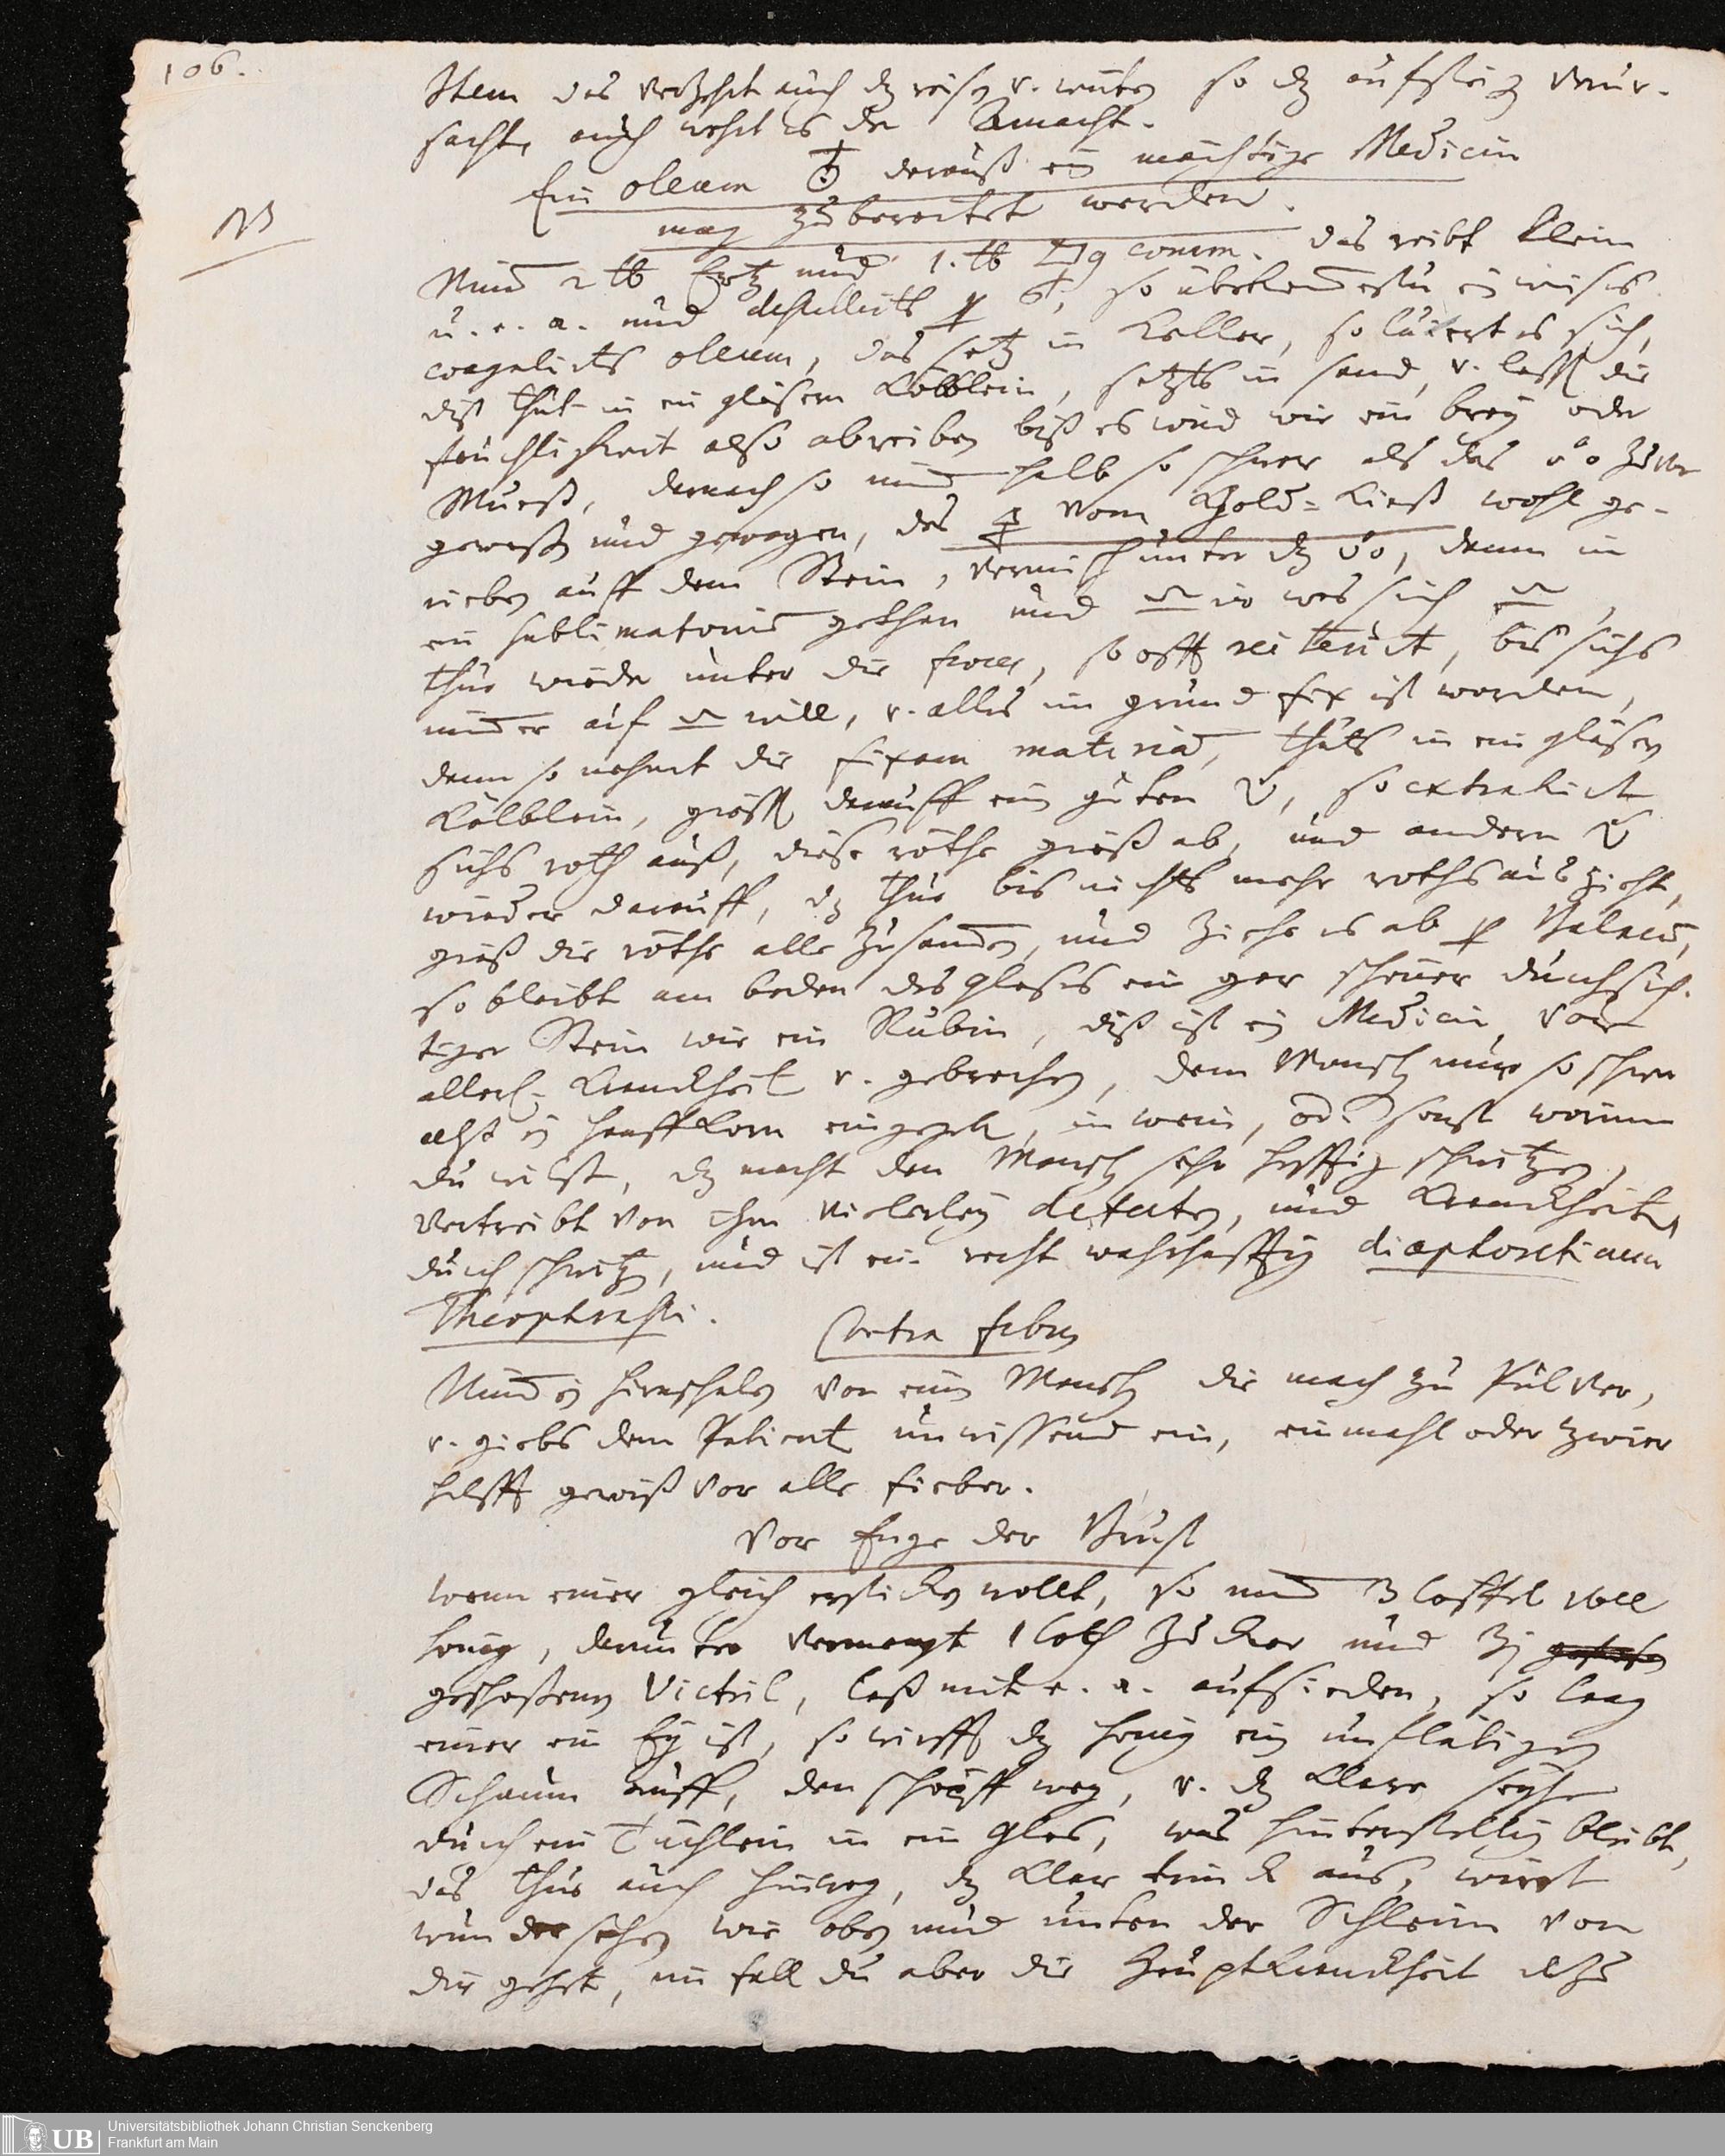 106.
Item das verzehrt auch dz reisen v. wüten so dz aufsteig verur-
sacht, auch wehrt es der Amacht.
Ein oleum ♁ darauß ein mächtige Medicin
mag zubereitet werden.
NB
Nim 2 ℔ Ertz und 1. ℔ comm. das reibt klein
u. e. a. und destillirts ꝑ so überkommestu ein weises
coagulirts oleum, das setz in Keller, so lutert es sich,
diß thut in ein gläsern Kölblein, setzts in sand, v. lasst die
feuchtigkeit also abreiben biß es wird wie ein brey oder
Mueß, darnach so nim halb so schwer als das zuvor
gewest und gewogen, des 🜍 vom Gold-Kieß wohl ge-
rieben auff dem Stein, vermisch unter dz, dann in
ein sublimatorium gethan und was sich,
thue wieder unter die feces, so offt reiterirt, bis sichs
nimmer auf will, v. alles im grund fix ist worden,
dann so nehmt die fixam materiam, thuts in ein gläsen
Kölblein, giesst darauff ein guten, so extrahirt
sichs roth auß, diese röthe gieß ab, und andern
wieder darauff, dz thue bis nichts mehr roths auszieht,
gieß die röthe alle zusammen, und ziehe es ab ꝑ Balneum,
so bleibt am boden des glases ein gar schöner durchsich-
tiger Stein wie ein Rubin, diß ist ein Medicin vor
allerl. Kranckheit v. gebrechen, dem Mensch nur so schwer
alß ein hanffkorn eingegeben, in wein, oder sonst worinn
du wilst, dz macht den Mensch sehr hefftig schwitzen,
vertreibt von ihm vielerley defecten, und Kranckheiten
durch schwitzen, und ist ein recht wahrhafftig diaphoreticum
Theophrasti.
Contra febres
Nim ein hirnschalen von eim Mensch die mach zu Pulver,
v. giebs dem Patient unwissend ein, einmahl oder zwier
helfft gewiß vor alle fieber.
Vor Enge der Brust
wenn einer gleich ersticken wollt, so nim 3 löffel voll
honig, darunter vermengt 1 loth Zucker und ʒj
geschoßenen Victril, laß mit e. a. aufsieden, so lang
einer ein Ey ist, so wirfft dz honig ein unflätigen
Schaum auff, den schöpff weg, v. dz klare seyhe
durch ein Tüchlein in ein glas, was hinterstellig bleibt,
das thue auch hinweg, dz klar trinck aus, wirst
wunder sehen wie oben und unten der Schleim von
dir gehet, im fall du aber die Hauptkranckheit alzu
Universitätsbibliothek Johann Christian Senckenberg
UB Frankfurt am Main